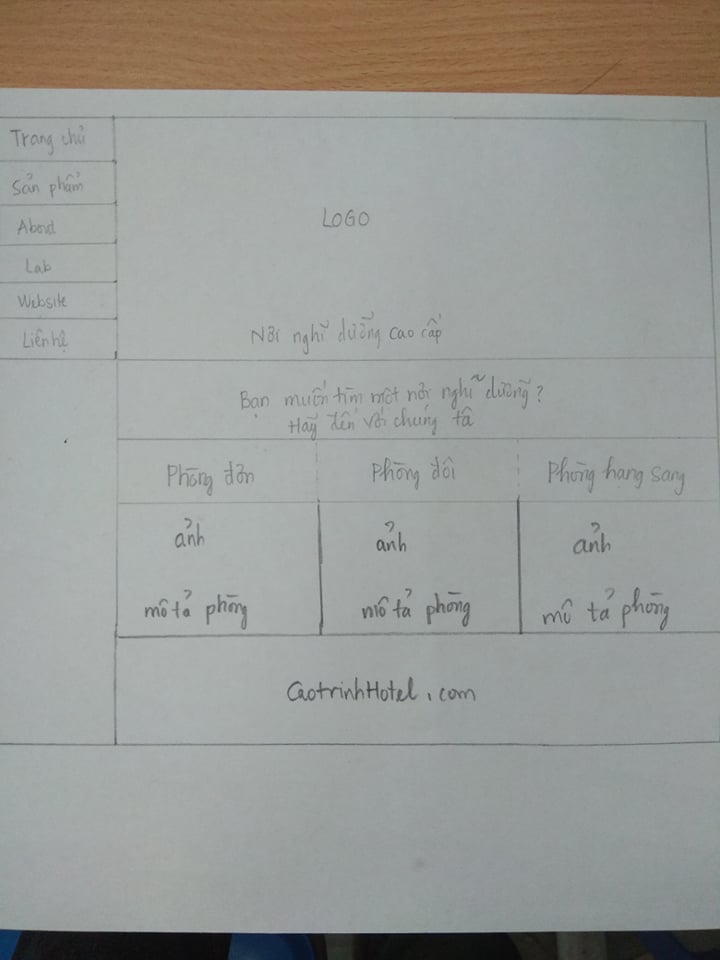 Trang chủ
Sản phẩm
About
Lab
Website
Liên hệ
LOGO
Nơi nghĩ dưỡng cao cấp
Bạn muốn tìm một nơi nghĩ dưỡng?
Hãy đến với chúng ta
Phòng đơn
Phòng đôi
Phòng hạng sang
ảnh
ảnh
ảnh
mô tả phòng
mô tả phòng
mô tả phòng
CaotrinhHotel.com